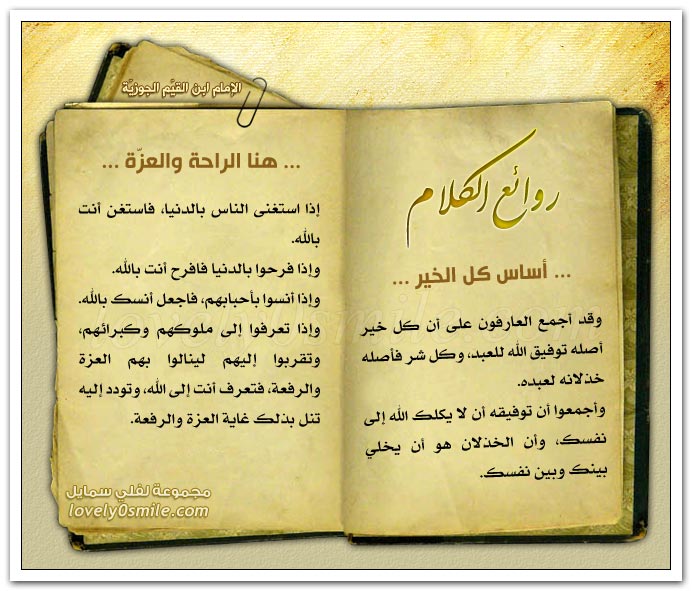 الإمام ابن القيَّم الجوزيَّة
روائع الكلام
... أساس كل الخير ...
وقد أجمع العارفون على أن كل خير
أصله توفيق الله للعبد، وكل شر فأصله
خذلانه لعبده.
وأجمعوا أن توفيقه أن لا يكلك الله إلى
نفسك، وأن الخذلان هو أن يخلي
بينك وبين نفسك.
... هنا الراحة والعزّة ...
إذا استغنى الناس بالدنيا، فاستغن أنت
بالله.
وإذا فرحوا بالدنيا فافرح أنت بالله.
وإذا أنسوا بأحبابهم، فاجعل أنسك بالله.
وإذا تعرفوا إلى ملوكهم وكبرائهم،
وتقربوا إليهم لينالوا بهم العزة
والرفعة، فتعرف أنت إلى الله، وتودد إليه
تنل بذلك غاية العزة والرفعة.
مجموعة لفلي سمايل
lovely0smile.com